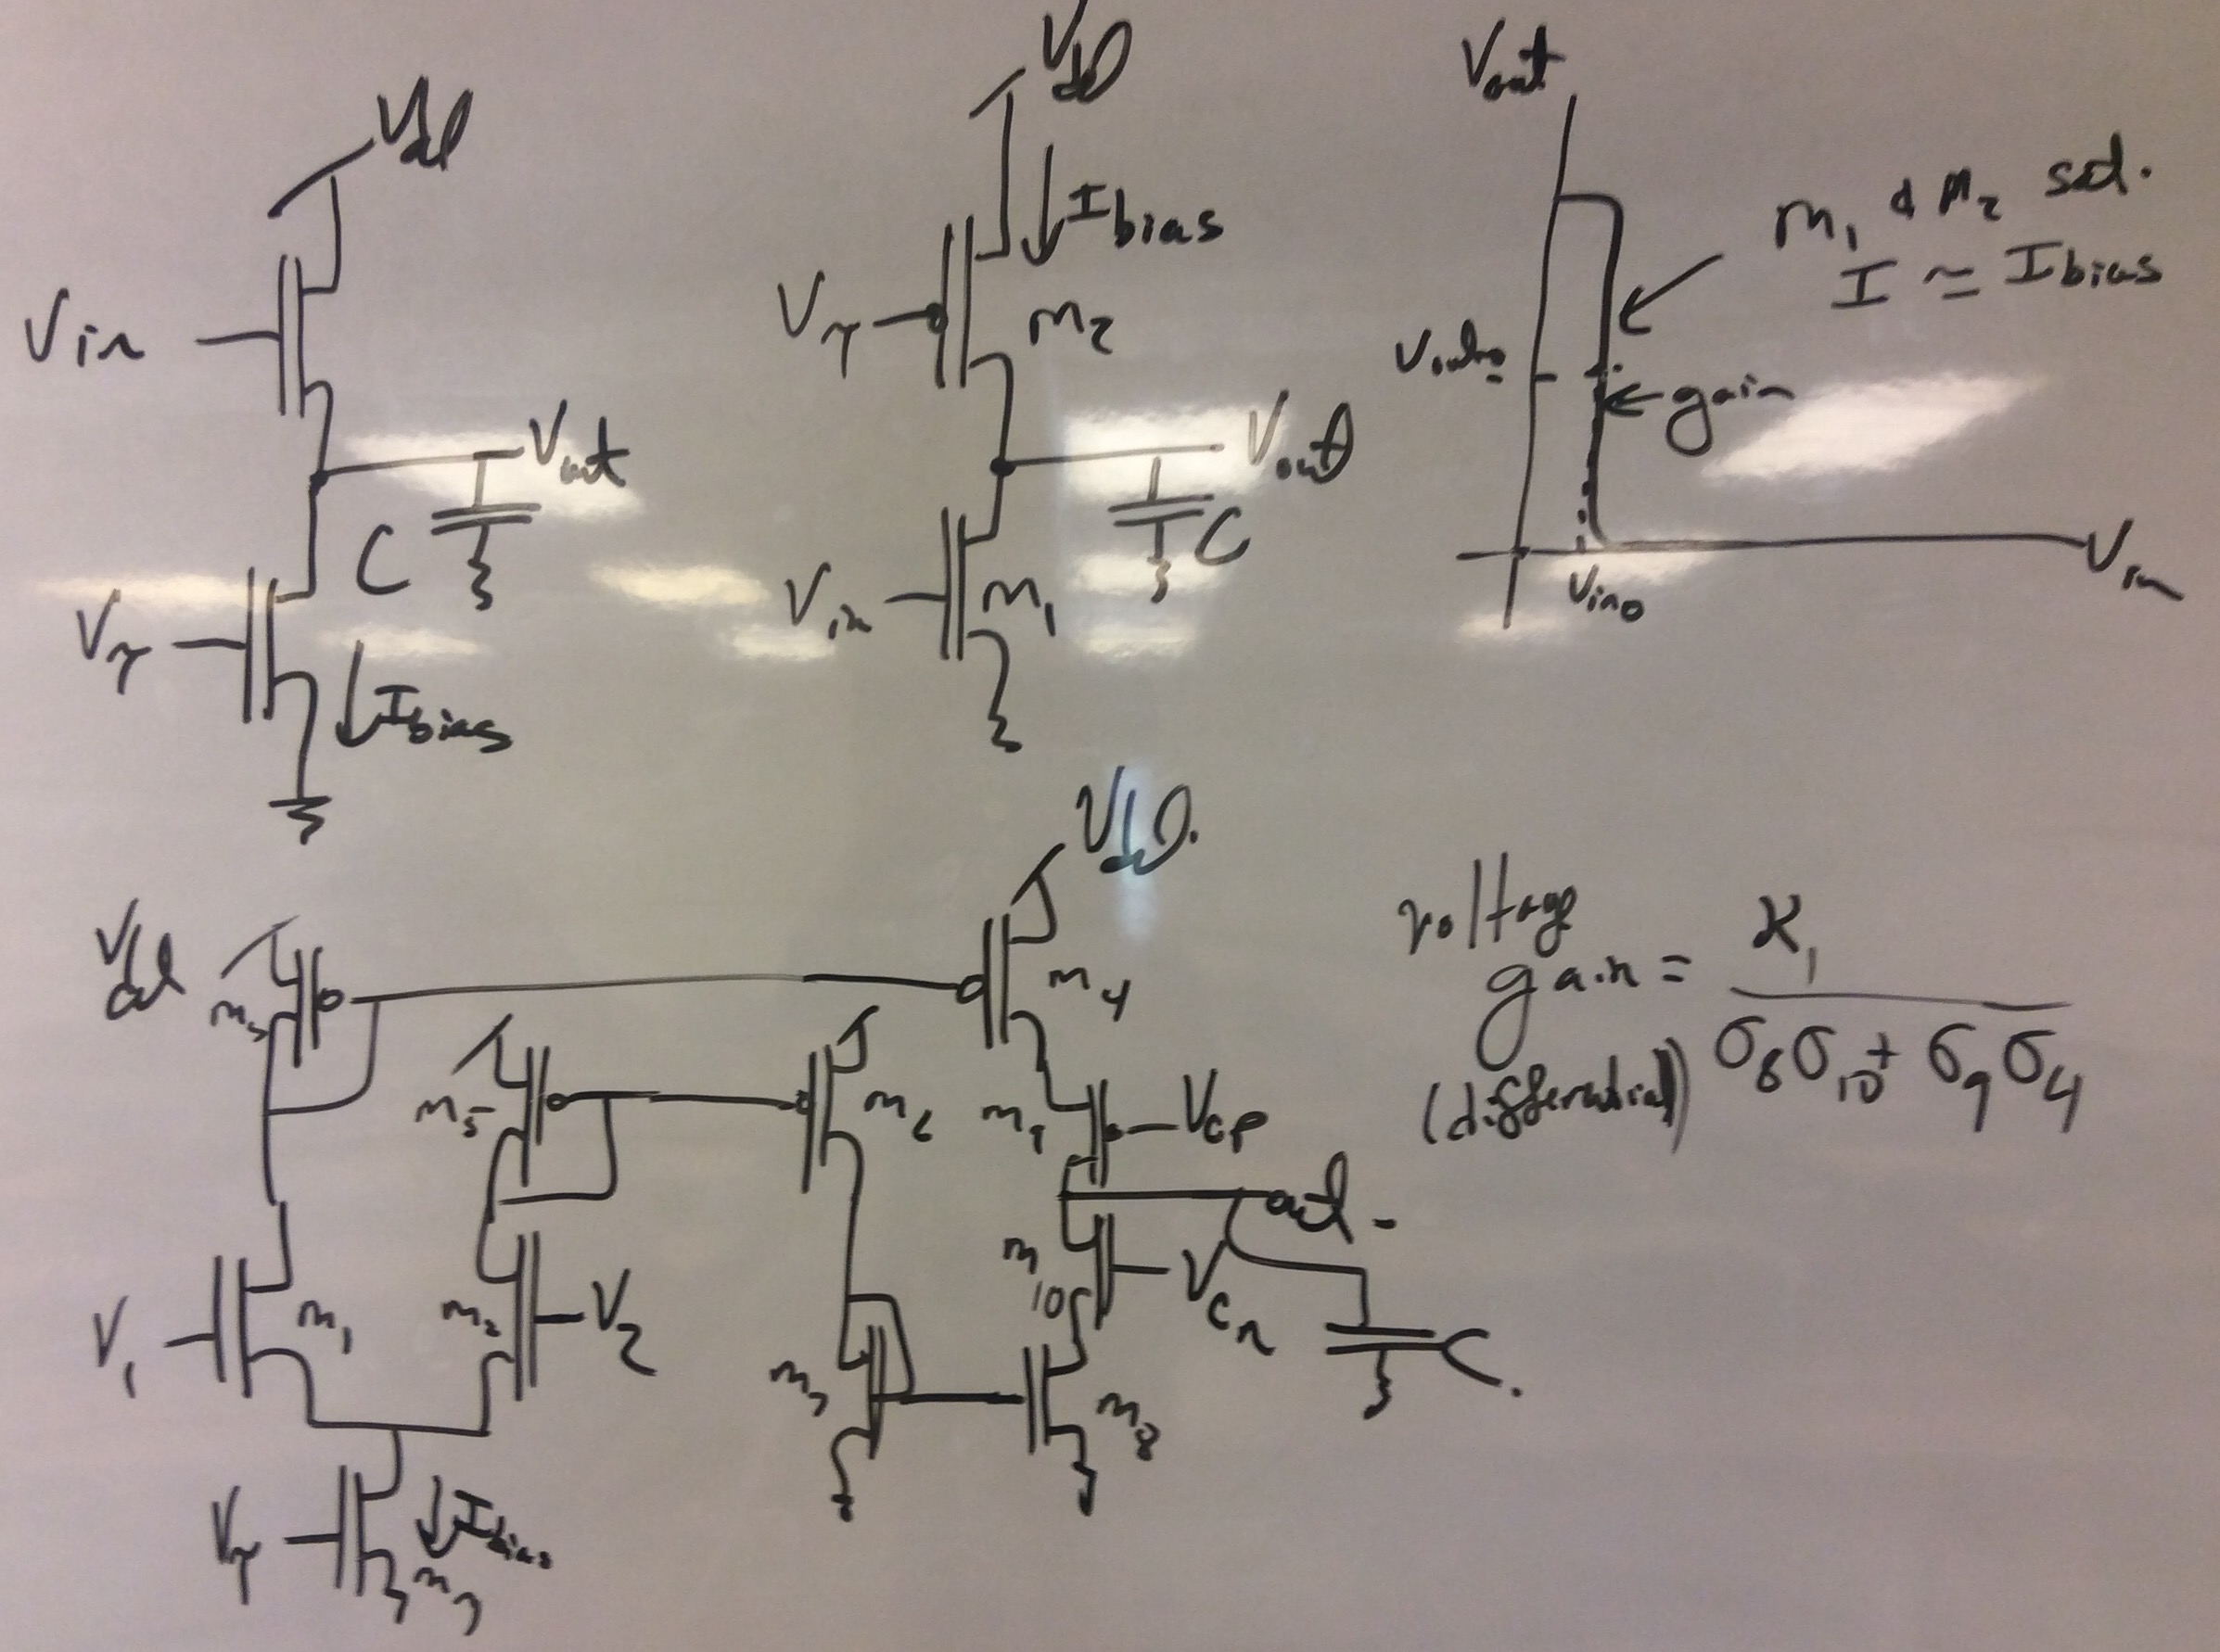 Vdd
Vin
Vout
C
Vτ
Ibias
Vdd
Ibias
Vτ
M2
Vout
C
Vin
M1
Vout
M1 & M2 sat.
I ≃ Ibias
Vout0
gain
Vin0
Vin
Vdd
M5
M6
M4
Vdd.
M9
Vcp
out
M10
Vcn
C.
V1
M1
M2
V2
M7
M8
Vτ
Ibias
voltage
gain = κ1 / σ8σ10 + σ9σ4
(differential)